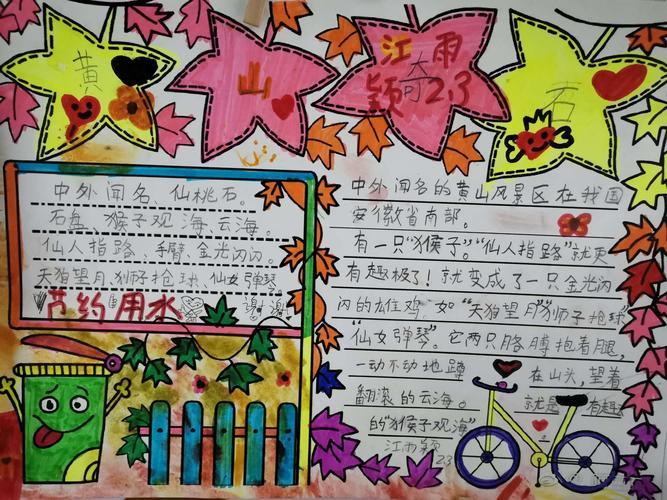 黄
山
奇
石
江雨
颖2.3
中外闻名、仙桃石。
石盘、猴子观海、云海。
仙人指路、手臂、金光闪闪。
天狗望月、狮子抢球、仙女弹琴。
节约用水
谢谢
中外闻名的黄山风景区在我国
安徽省南部。
有一只“猴子”。“仙人指路”就更
有趣极了!就变成了一只金光闪
闪的雄鸡,如“天狗望月”“狮子抢球”
“仙女弹琴”。它两只胳膊抱着腿,
一动不动地蹲在山头,望着
翻滚的云海。就是有趣
的“猴子观海”
江雨颖
2.3